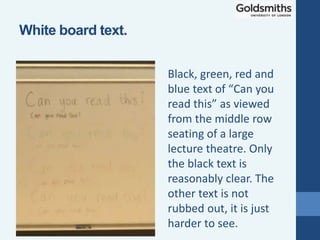 Goldsmiths
UNIVERSITY OF LONDON
White board text.
Black, green, red and
blue text of “Can you
read this” as viewed
from the middle row
seating of a large
lecture theatre. Only
the black text is
reasonably clear. The
other text is not
rubbed out, it is just
harder to see.
Can you read this?
Can you read this?
Can you read this?
Can you read this?